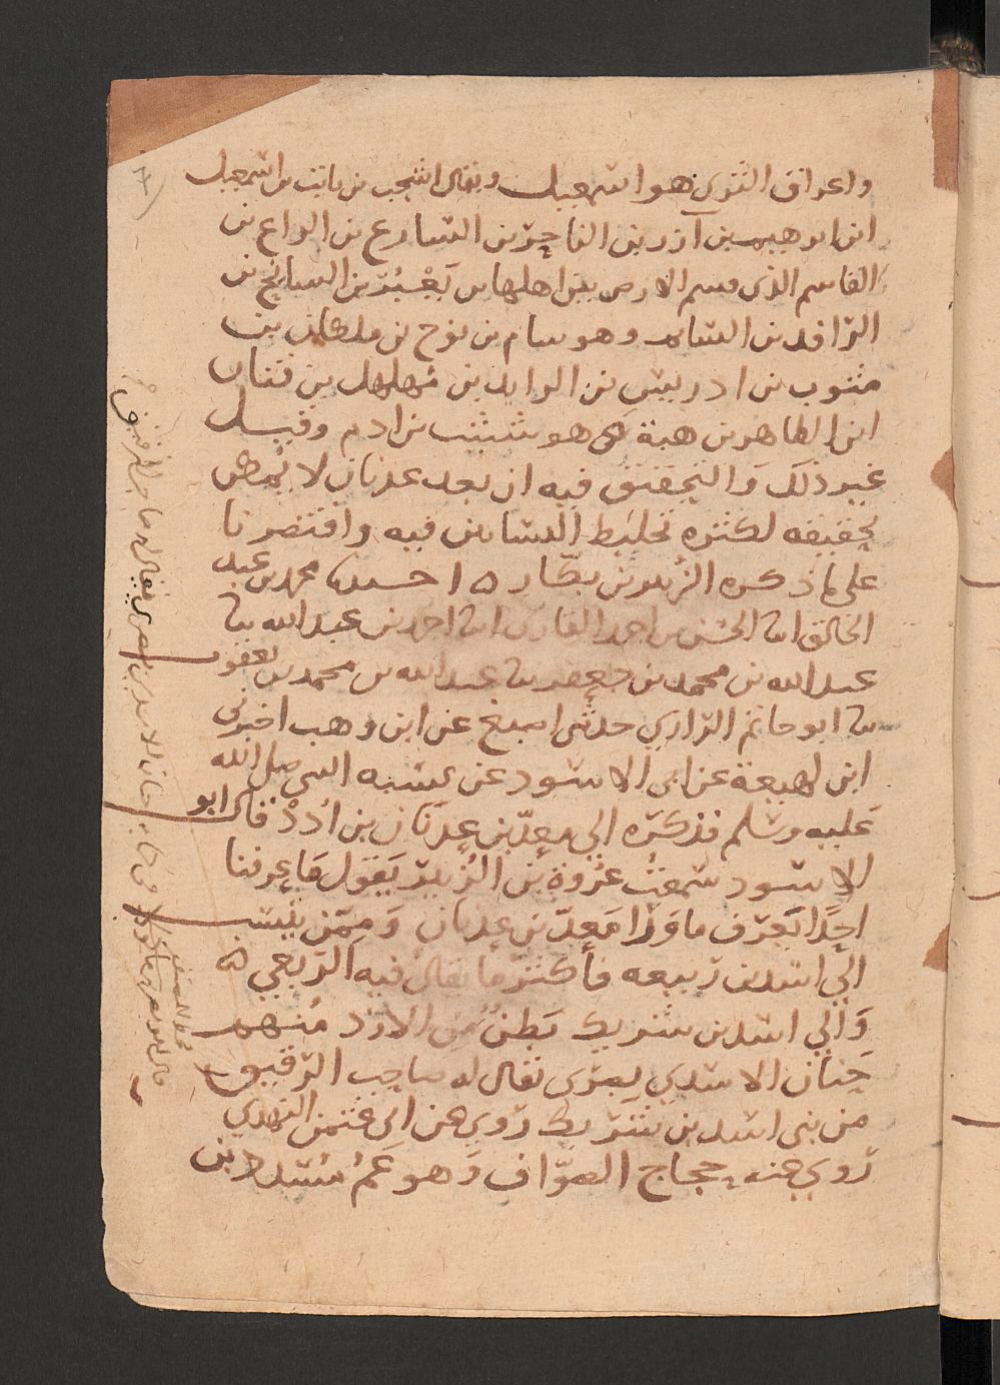 واعراق الثرى هو اسمعيل ويقال اشجب بن نابت بن اسمعيل
ابن ابرهيم بن آزر بن الناجر بن الشارع بن الراع بن
القاسم الذي قسم الارض بين اهلها بن يعبر بن السايح بن
الرافد بن السام وهو سام بن نوح بن ملكان بن
مثوب بن ادريس بن الرايد بن مهلهل بن قنان
ابن الطاهر بن هبة وهو شيث بن ادم وقيل
غير ذلك والتحقيق فيه ان بعد عدنان لا يمضى
تحقيقه لكثرة تخليط النسابين فيه واقتصرنا
على ما ذكره الزبير بن بكار ه اخبرنا محمد بن عبد
الخالق انا الحسن بن احمد القارئ انا احمد بن عبد الله نا
عبد الله بن محمد بن جعفر نا عبد الله بن محمد بن يعقوب
نا ابو حاتم الرازي حدثني اصبغ عن ابن وهب اخبرني
ابن لهيعة عن ابي الاسود عن نسبه النبي صلى الله
عليه وسلم فذكره الى معد بن عدنان بن أدد قال ابو
الاسود سمعت عروة بن الزبير يقول ما عرفنا
احدا يعرف ما وراء معد بن عدنان وممن ينسب
الى اسد بن ربيعه فاكثر ما يقال فيه الربعي ه
والى اسد بن شريك بطن من الازد منهم
حنان الاسدي بصري يقال له صاحب الرقيق
من بني اسد بن شريك روى عن ابي عثمن النهدي
روى عنه حجاج الصواف وهو عم مسدد بن
حنان الاسدي بصري يقال له صاحب الرقيق